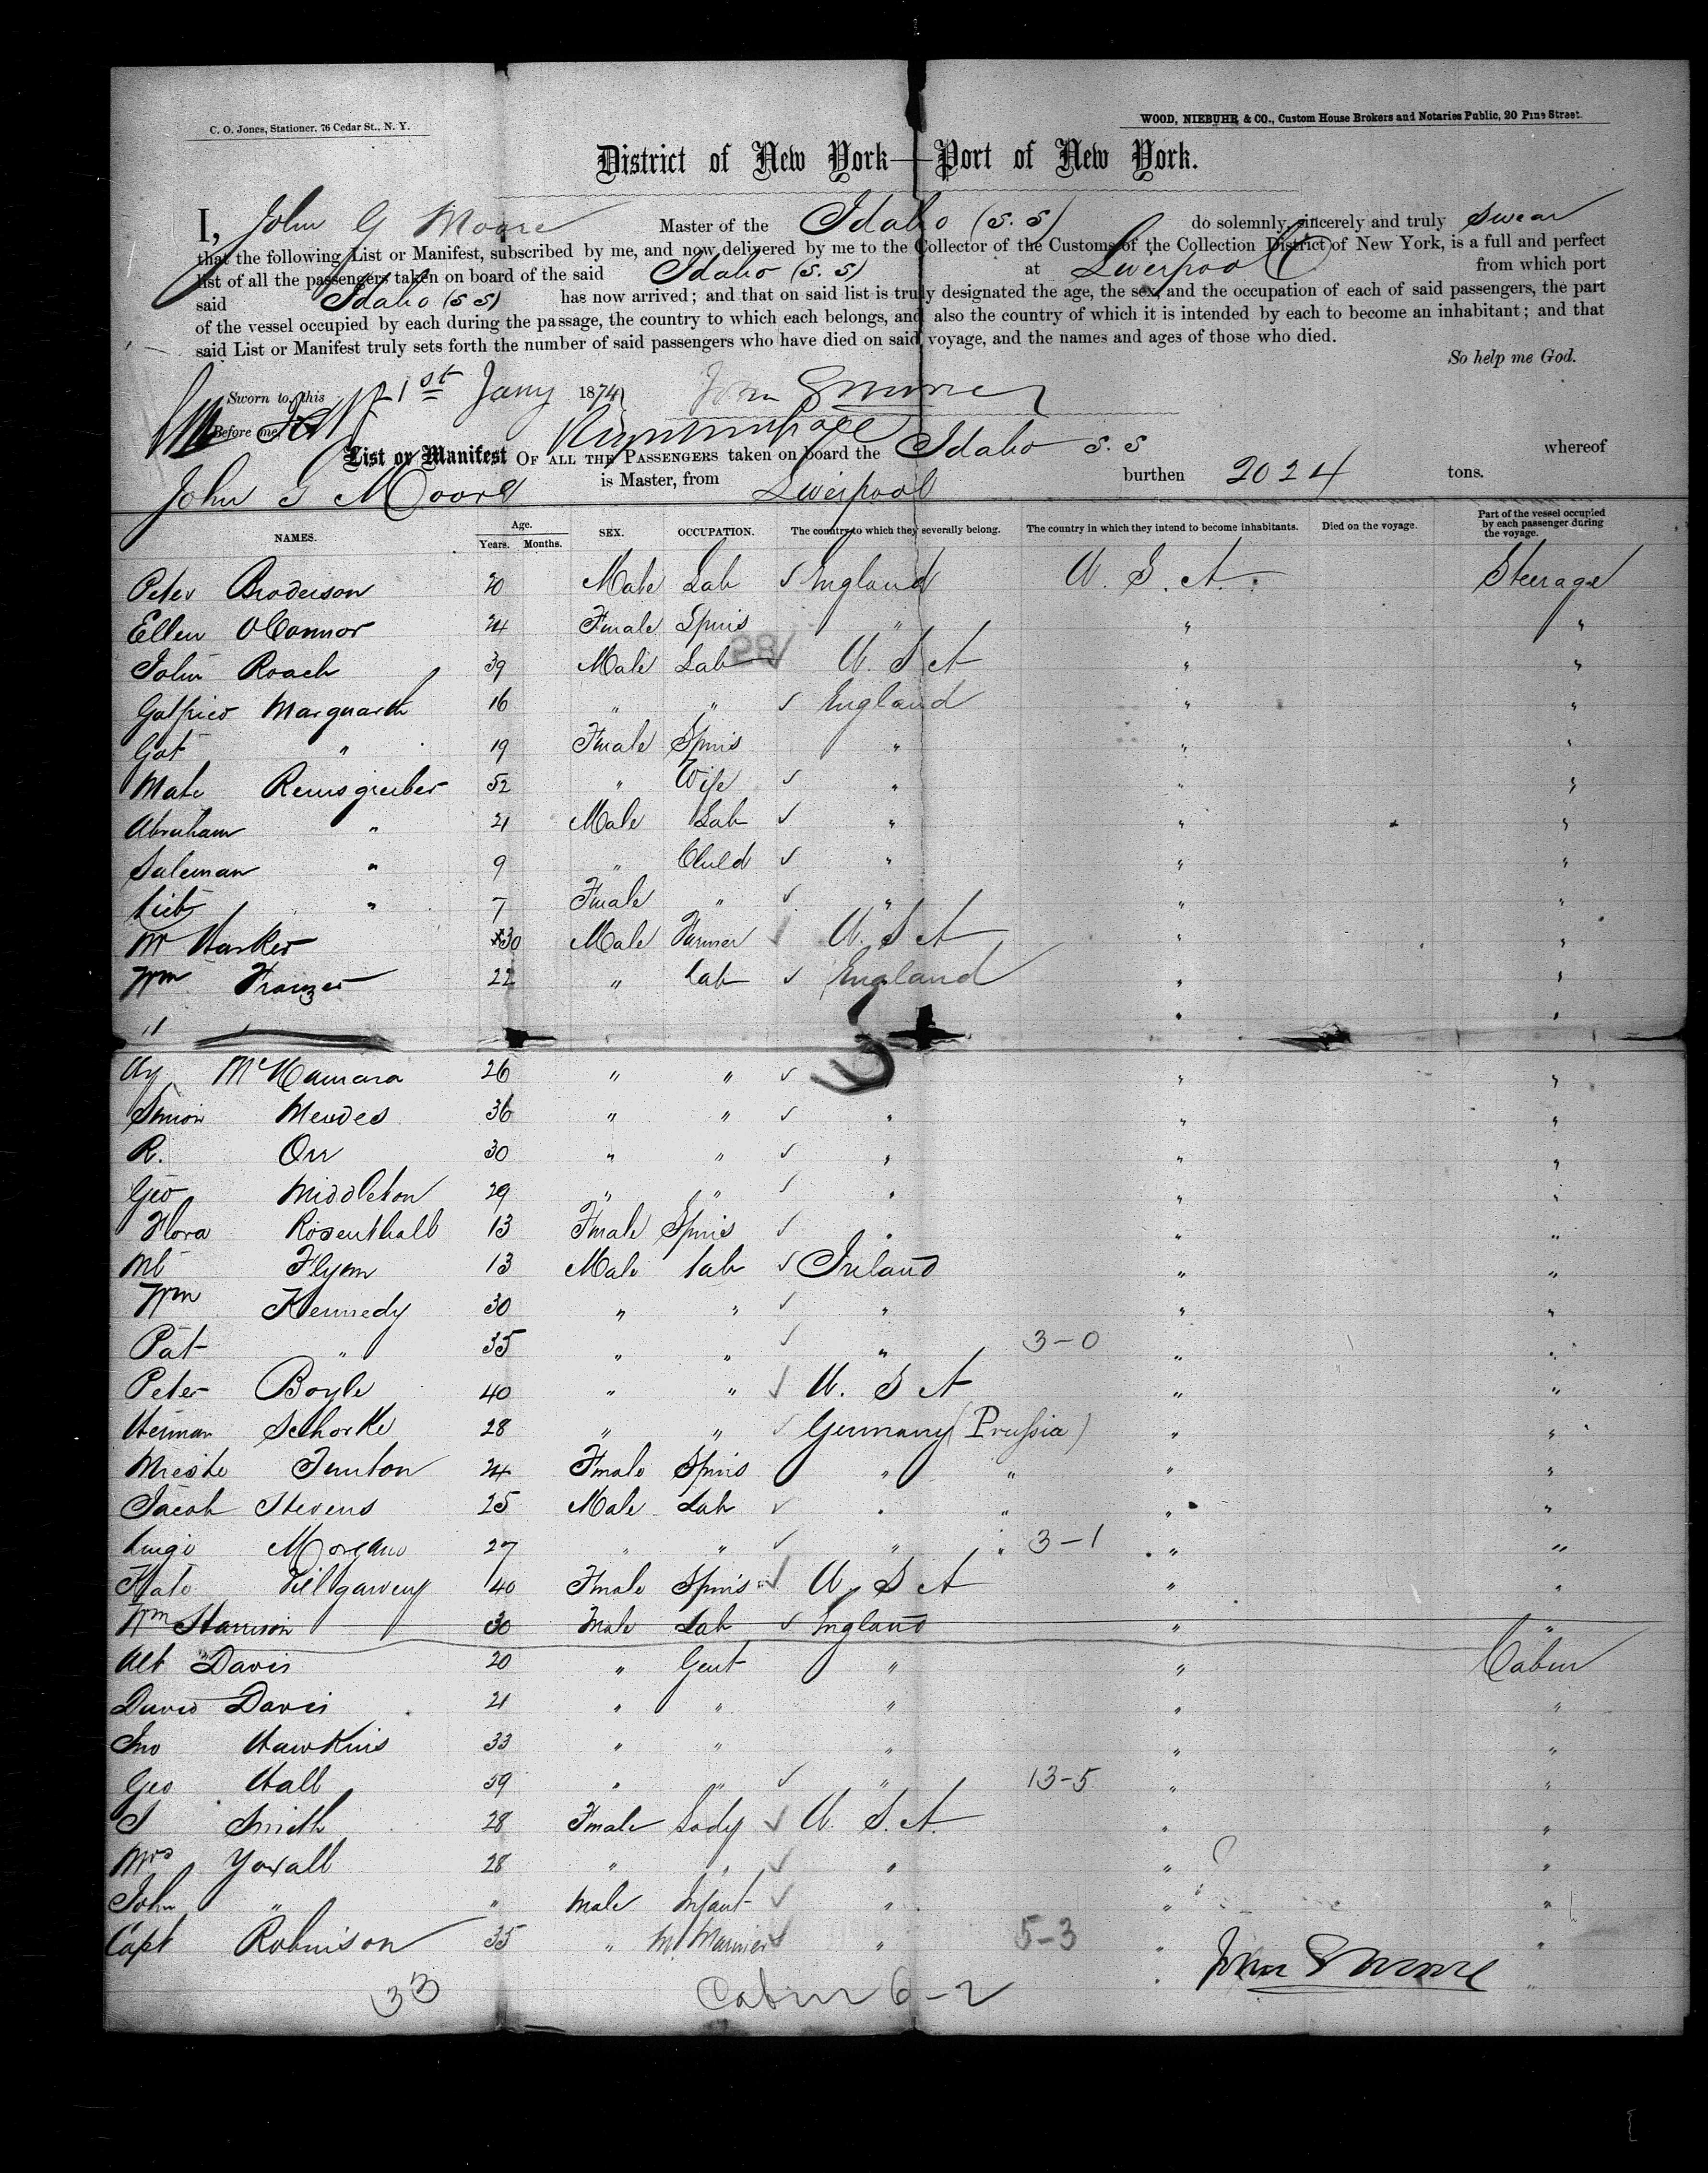 C. O. Jones, Stationer, 76 Cedar St., N. Y.
WOOD, NIEBUHR & CO., Custom House Brokers and Notaries Public, 20 Pine Street.
District of New York—Port of New York.
I, John G Moore Master of the Idaho (S. S) do solemnly, sincerely and truly swear
that the following List or Manifest, subscribed by me, and now delivered by me to the Collector of the Customs of the Collection District of New York, is a full and perfect
list of all the passengers taken on board of the said Idaho (S. S) at Liverpool from which port
said Idaho (S S) has now arrived; and that on said list is truly designated the age, the sex, and the occupation of each of said passengers, the part
of the vessel occupied by each during the passage, the country to which each belongs, and also the country of which it is intended by each to become an inhabitant; and that
said List or Manifest truly sets forth the number of said passengers who have died on said voyage, and the names and ages of those who died.
So help me God.
Sworn to, this 1st Jany 1874
Before me,
List or Manifest OF ALL THE PASSENGERS taken on board the Idaho S. S whereof
John G Moore is Master, from Liverpool burthen 2024 tons.
NAMES. Age. Years. Months. SEX. OCCUPATION. The country to which they severally belong. The country in which they intend to become inhabitants. Died on the voyage. Part of the vessel occupied by each passenger during the voyage.
Peter Broderson 20 Male Lab ✓ England U. S. A. Steerage
Ellen OConnor 24 Female Spins " " "
John Roach 39 Male Lab ✓ U. S A " "
Marguarth 16 " " ✓ England " "
Got " 19 Fmale Spins " " "
Mate 52 " Wife ✓ " " "
Abraham " 21 Male Lab ✓ " " "
Saleman " 9 " Child ✓ " " "
" 7 Fmale " ✓ " " "
30 Male Farmer ✓ U. S A " "
Wm 22 " Lab ✓ England " "
McNamara 26 " " ✓ " " "
Simon Mendes 36 " " ✓ " " "
R. Orr 30 " " ✓ " " "
Geo Middleton 29 " " ✓ " " "
Flora Rosenthall 13 Fmale Spins ✓ " " "
Ml Flynn 13 Male Lab ✓ Ireland " "
Wm Kennedy 30 " " ✓ " " "
Pat " 35 " " ✓ " 3-0 " "
Peter Boyle 40 " " ✓ U. S A " "
Herman Schorke 28 " " ✓ Germany (Prussia) " "
24 Fmale Spins " " " "
Jacob Stevens 25 Male Lab ✓ " " " "
Luigi Morgano 27 " " ✓ " " 3-1 " "
Kate 40 Fmale Spins ✓ U. S A " "
Wm Harrison 30 Male Lab ✓ England " "
Alt Davis 20 " Gent " " Cabin
David Davis 21 " " " " "
Jno Hawkins 33 " " " " "
Geo Hall 39 " " ✓ " 13-5 " "
S Smith 28 Fmale Lady ✓ U. S. A. " "
Mrs Yoxall 28 " " ✓ " " "
John " " Male Infant ✓ " " "
Capt Robinson 35 " M. Mariner ✓ " 5-3 " "
33
Cabin 6-2